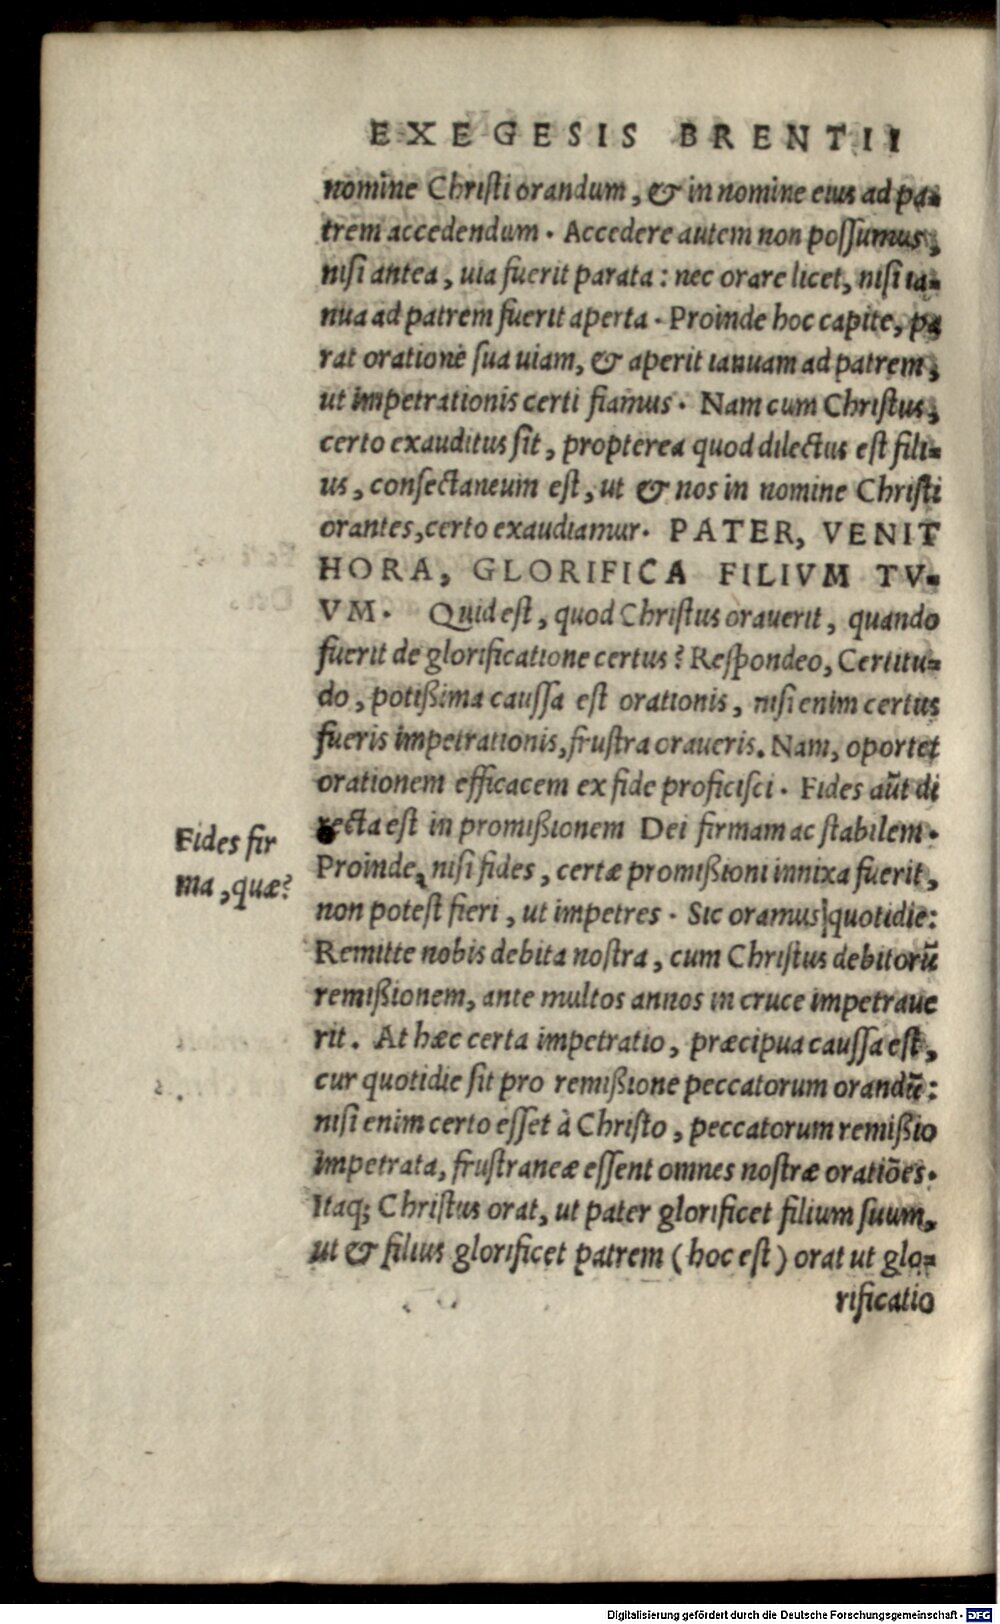 EXEGESIS BRENTII
nomine Christi orandum, & in nomine eius ad pa-
trem accedendum. Accedere autem non possumus,
nisi antea, uia fuerit parata: nec orare licet, nisi ia-
nua ad patrem fuerit aperta. Proinde hoc capite, pa
rat oratione sua uiam, & aperit ianuam ad patrem,
ut impetrationis certi fiamus. Nam cum Christus,
certo exauditus sit, propterea quod dilectus est fili-
us, consectaneum est, ut & nos in nomine Christi
orantes, certo exaudiamur. PATER, VENIT
HORA, GLORIFICA FILIVM TV-
VM. Quid est, quod Christus orauerit, quando
fuerit de glorificatione certus? Respondeo, Certitu-
do, potißima caussa est orationis, nisi enim certus
fueris impetrationis, frustra oraueris. Nam, oportet
orationem efficacem ex fide proficisci. Fides aūt di
recta est in promißionem Dei firmam ac stabilem.
Fides fir
ma, quæ?
Proinde, nisi fides, certæ promißioni innixa fuerit,
non potest fieri, ut impetres. Sic oramus quotidie:
Remitte nobis debita nostra, cum Christus debitorū
remißionem, ante multos annos in cruce impetraue
rit. At hæc certa impetratio, præcipua caussa est,
cur quotidie sit pro remißione peccatorum orandū:
nisi enim certo esset à Christo, peccatorum remißio
impetrata, frustraneæ essent omnes nostræ oratiōes.
Itaq; Christus orat, ut pater glorificet filium suum,
ut & filius glorificet patrem (hoc est) orat ut glo-
rificatio
Digitalisierung gefördert durch die Deutsche Forschungsgemeinschaft - DFG